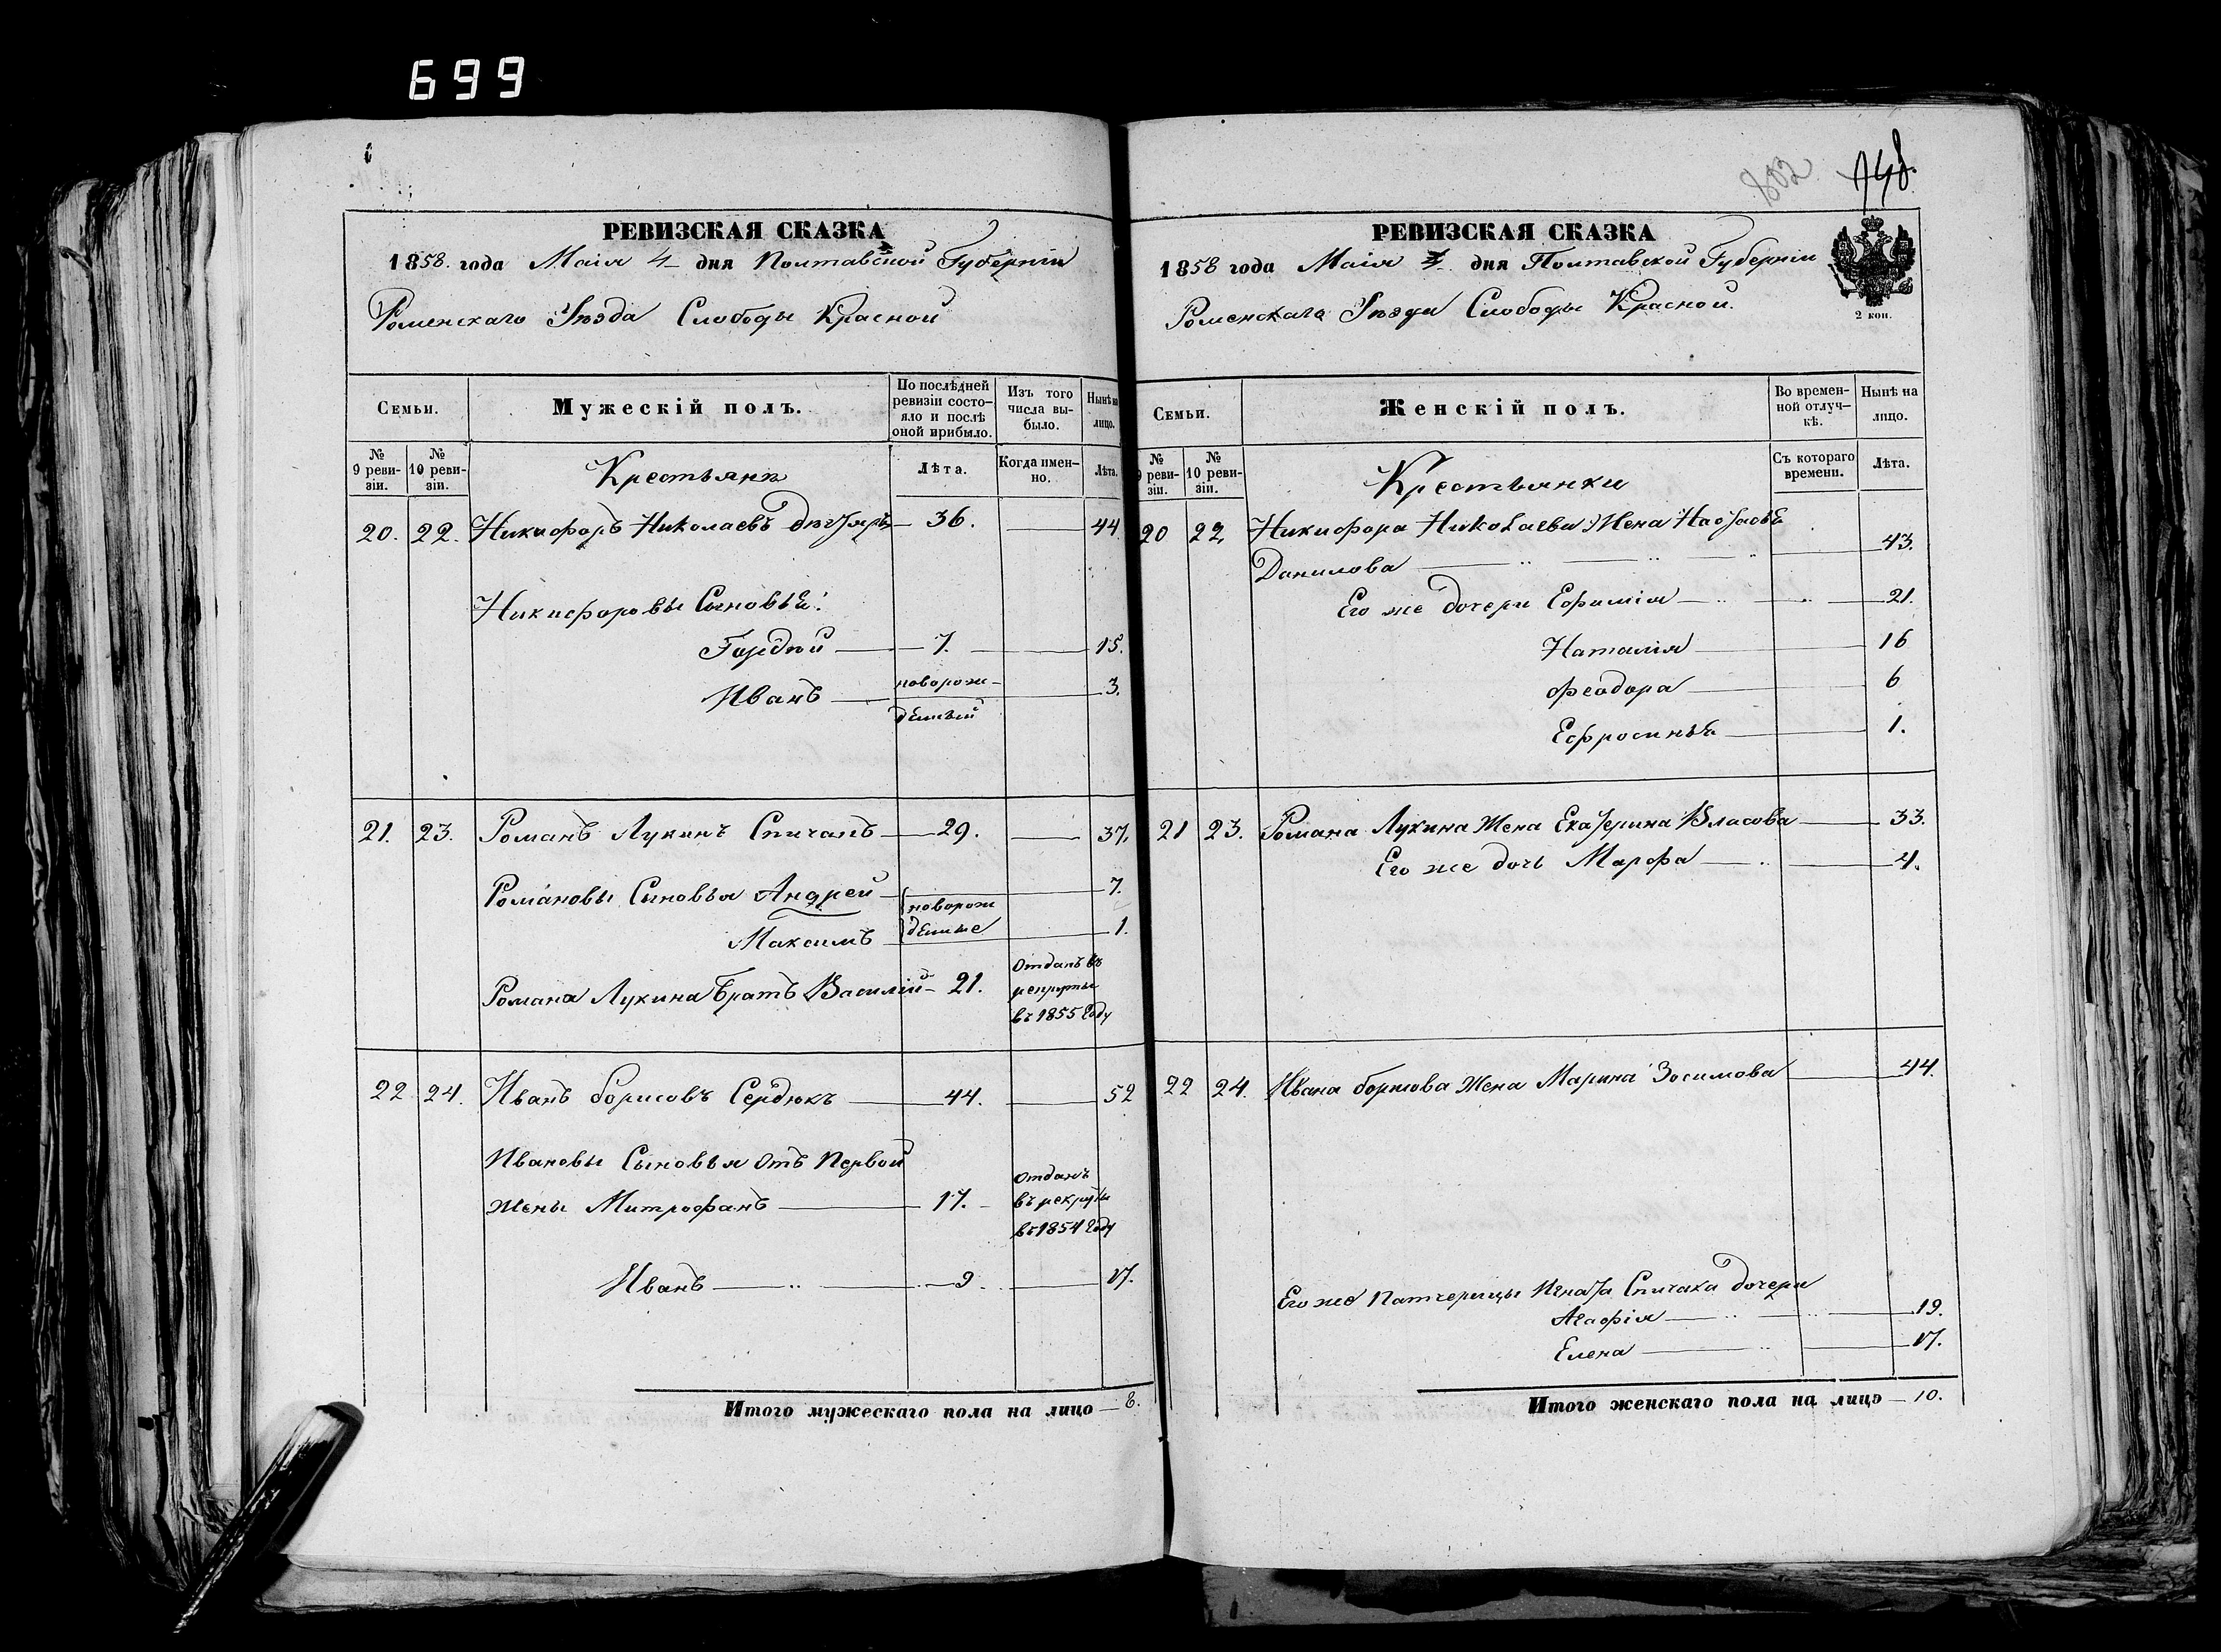 699
802
748.
РЕВИЗСКАЯ СКАЗКА
1858. года Маія 4 дня Полтавской Губерніи
Роменскаго Уѣзда Слободы Красной
Семьи.
Мужескій полъ.
По послѣдней ревизіи состояло и послѣ оной прибыло.
Изъ того числа выбыло.
Нынѣ на лицо.
№ 9 ревизіи.
№ 10 ревизіи.
Крестьянъ
Лѣта.
Когда именно.
Лѣта.
20. 22. Никифоръ Николаевъ 36. 44
Никифоровы Сыновья:
Гордѣй 7. 15.
Иванъ новорожденый 3.
21. 23. Романъ Лукинъ Спичакъ 29. 37.
Романовы Сыновья Андрей 7.
новорожденые
Максимъ 1.
Романа Лукина Братъ Василій 21. Отданъ въ рекруты въ 1855 Году
22. 24. Иванъ Борисовъ Сердюкъ 44. 52
Ивановы Сыновья отъ Первой
жены Митрофанъ 17. Отданъ въ рекруты въ 1854 Году
Иванъ 9. 17.
Итого мужескаго пола на лицо 8.
РЕВИЗСКАЯ СКАЗКА
1858 года Маія дня Полтавской Губерніи
Роменскаго Уѣзда Слободы Красной.
2 коп.
Семьи.
Женскій полъ.
Во временной отлучкѣ.
Нынѣ на лицо.
№ 9 ревизіи.
№ 10 ревизіи.
Крестьянки
Съ котораго времени.
Лѣта.
20 22 Никифора Николаева Жена Настасья
Данилова 43.
Его же дочери Ефимія 21.
Наталія 16
Феодора 6
Ефросинья 1.
21 23. Романа Лукина Жена Екатерина Власова 33.
Его же дочь Марфа 4.
22 24. Ивана Борисова Жена Марина Зосимова 44.
Его же Патчерицы Игната Спичака дочери
Агафія 19.
Елена 17.
Итого женскаго пола на лицо 10.